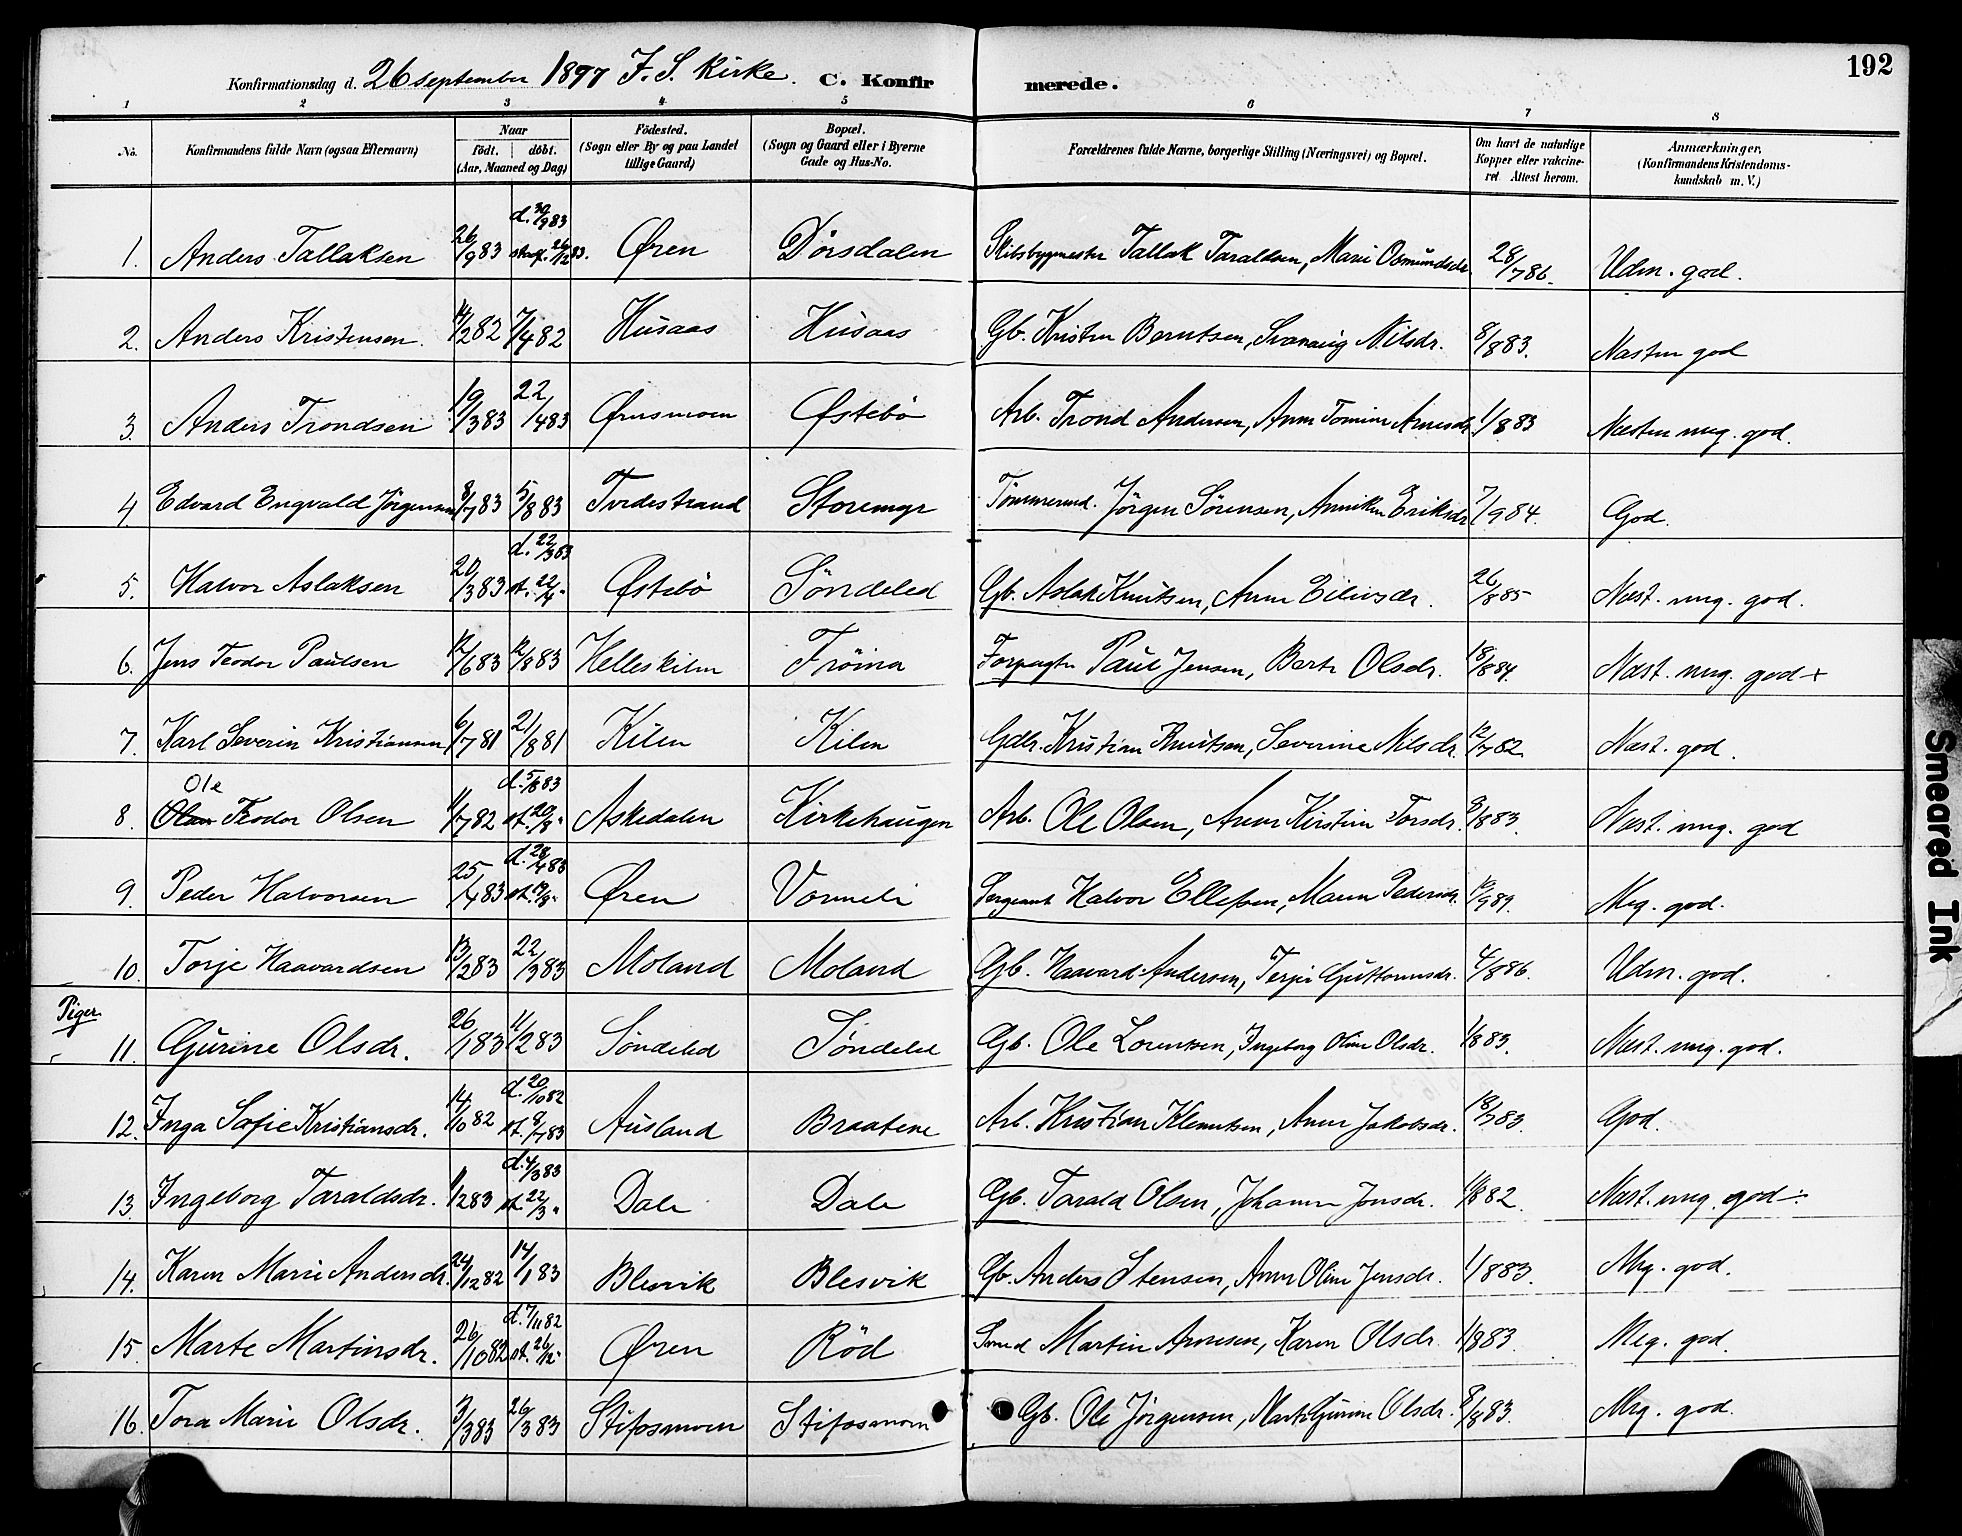 192
Konfirmationsdag d. 26 september 1897 F. S. Kirke. C. Konfirmerede.
1 2 3 4 5 6 7 8
No. Konfirmandens fulde Navn (ogsaa Efternavn) Naar født. døbt. (Aar, Maaned og Dag) Fødested. (Sogn eller By og paa Landet tillige Gaard) Bopæl. (Sogn og Gaard eller i Byerne Gade og Hus-No. Forældrenes fulde Navne, borgerlige Stilling (Næringsvei) og Bopæl. Om havt de naturlige Kopper eller vakcineret Attest herom. Anmærkninger, (Konfirmandens Kristendomskundskab m. V.)
1. Anders Tallaksen 26/9 83 d. 30/9 83 stadf. 26/12 83. Øren Dørsdalen Skibsbygmester Tallak Taraldsen, Marie Osmundsdr. 28/7 86. Udm. god.
2. Anders Kristensen. 14/2 82 7/4 82 Husaas Husaas Gb. Kristen Berntsen, Svanaug Nilsdr. 8/8 83. Næsten god
3. Anders Trondsen 19/3 83 22/4 83 Ørensmoen Østebø Arb. Trond Andersen, Anne Tomine Arnesdr. 1/8 83 Næsten meg. god.
4. Edvard Engvald Jørgensen 8/7 83 5/8 83 Tvedestrand Storemyr Tømmermd. Jørgen Sørensen, Anniken Eriksdr 7/9 84. God.
5. Halvor Aslaksen 20/3 83 d. 22/3 83 st. 22/4 " Østebø Søndeled Gb. Aslak Knutsen, Anne Eilivsdr. 26/8 85 Næst. meg. god.
6. Jens Teodor Paulsen 12/6 83 12/8 83 Helleskilen Frøina Forpagter Paul Jensen, Berte Olsdr. 18/8 84. Næst. meg. god +
7. Karl Severin Kristiansen 6/7 81 21/8 81 Kilen Kilen Gdbr. Kristian Knutsen, Severine Nilsdr. 12/7 82 Næst. god.
Ole
8. Olav Teodor Olsen 11/7 82 d. 5/8 83 st. 20/8 " Askedalen Kirkehaugen Arb. Ole Olsen, Anne Kirstine Torsdr. 3/8 83. Næst. meg. god
9. Peder Halvorsen 25/4 83 d. 28/4 83 st. 19/8 " Øren Vormeli Sergeant Halvor Ellefsen, Maren Pedersdr. 10/9 89. Meg. god.
10. Torje Haavardsen 13/2 83 22/3 83 Moland Moland Gb. Haavard Andersen, Terjer Guttormsdr. 4/8 86. Udm. god.
Piger
11. Gurine Olsdr. 26/1 83 11/2 83 Søndeled Søndeled Gb. Ole Lorentsen, Ingeborg Oline Olsdr. 1/8 83. Næst. meg. god.
12. Inga Sofie Kristiansdr. 14/10 82 d. 20/10 82 st. 9/7 83 Ausland Braatene Arb. Kristian Klemetsen, Anne Jakobsdr. 18/7 83. God.
13. Ingeborg Taraldsdr. 1/12 83 d. 4/3 83 st. 22/3 " Dale Dale Gb. Tarald Olsen, Johanne Jonsdr. 11/8 82. Næst. meg. god ÷
14. Karen Marie Andersdr. 24/12 82 14/1 83 Blesvik Blesvik Gb. Anders Stensen, Anne Oline Jensdr. 1/8 83. Meg. god.
15. Marte Martinsdr. 26/10 82 d. 7/11 82 st. 26/12 " Øren Rød Smed Martin Arnesen, Karen Olsdr. 1/8 83. Meg. god.
16. Tora Marie Olsdr. 3/3 83 26/3 83 Stifosmoen Stifosmoen Gb. Ole Jørgensen, Marte Gurine Olsdr. 8/8 83. Meg. god.
Smeared Ink